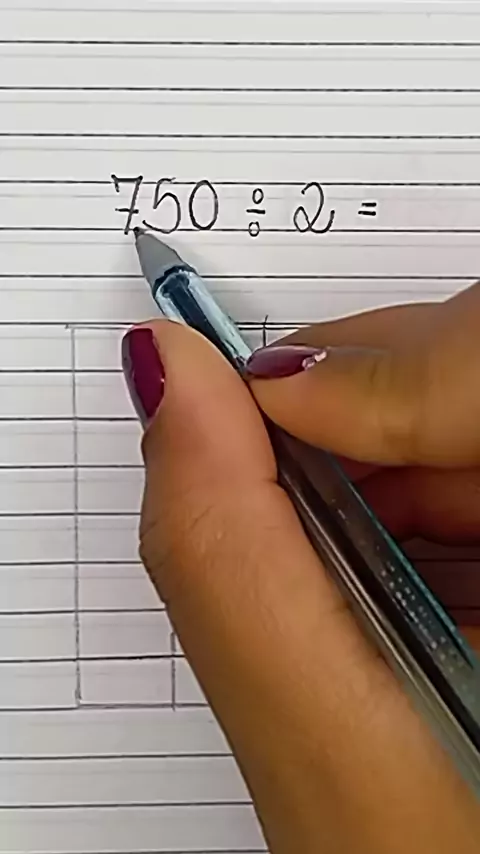 750 ÷ 2 =